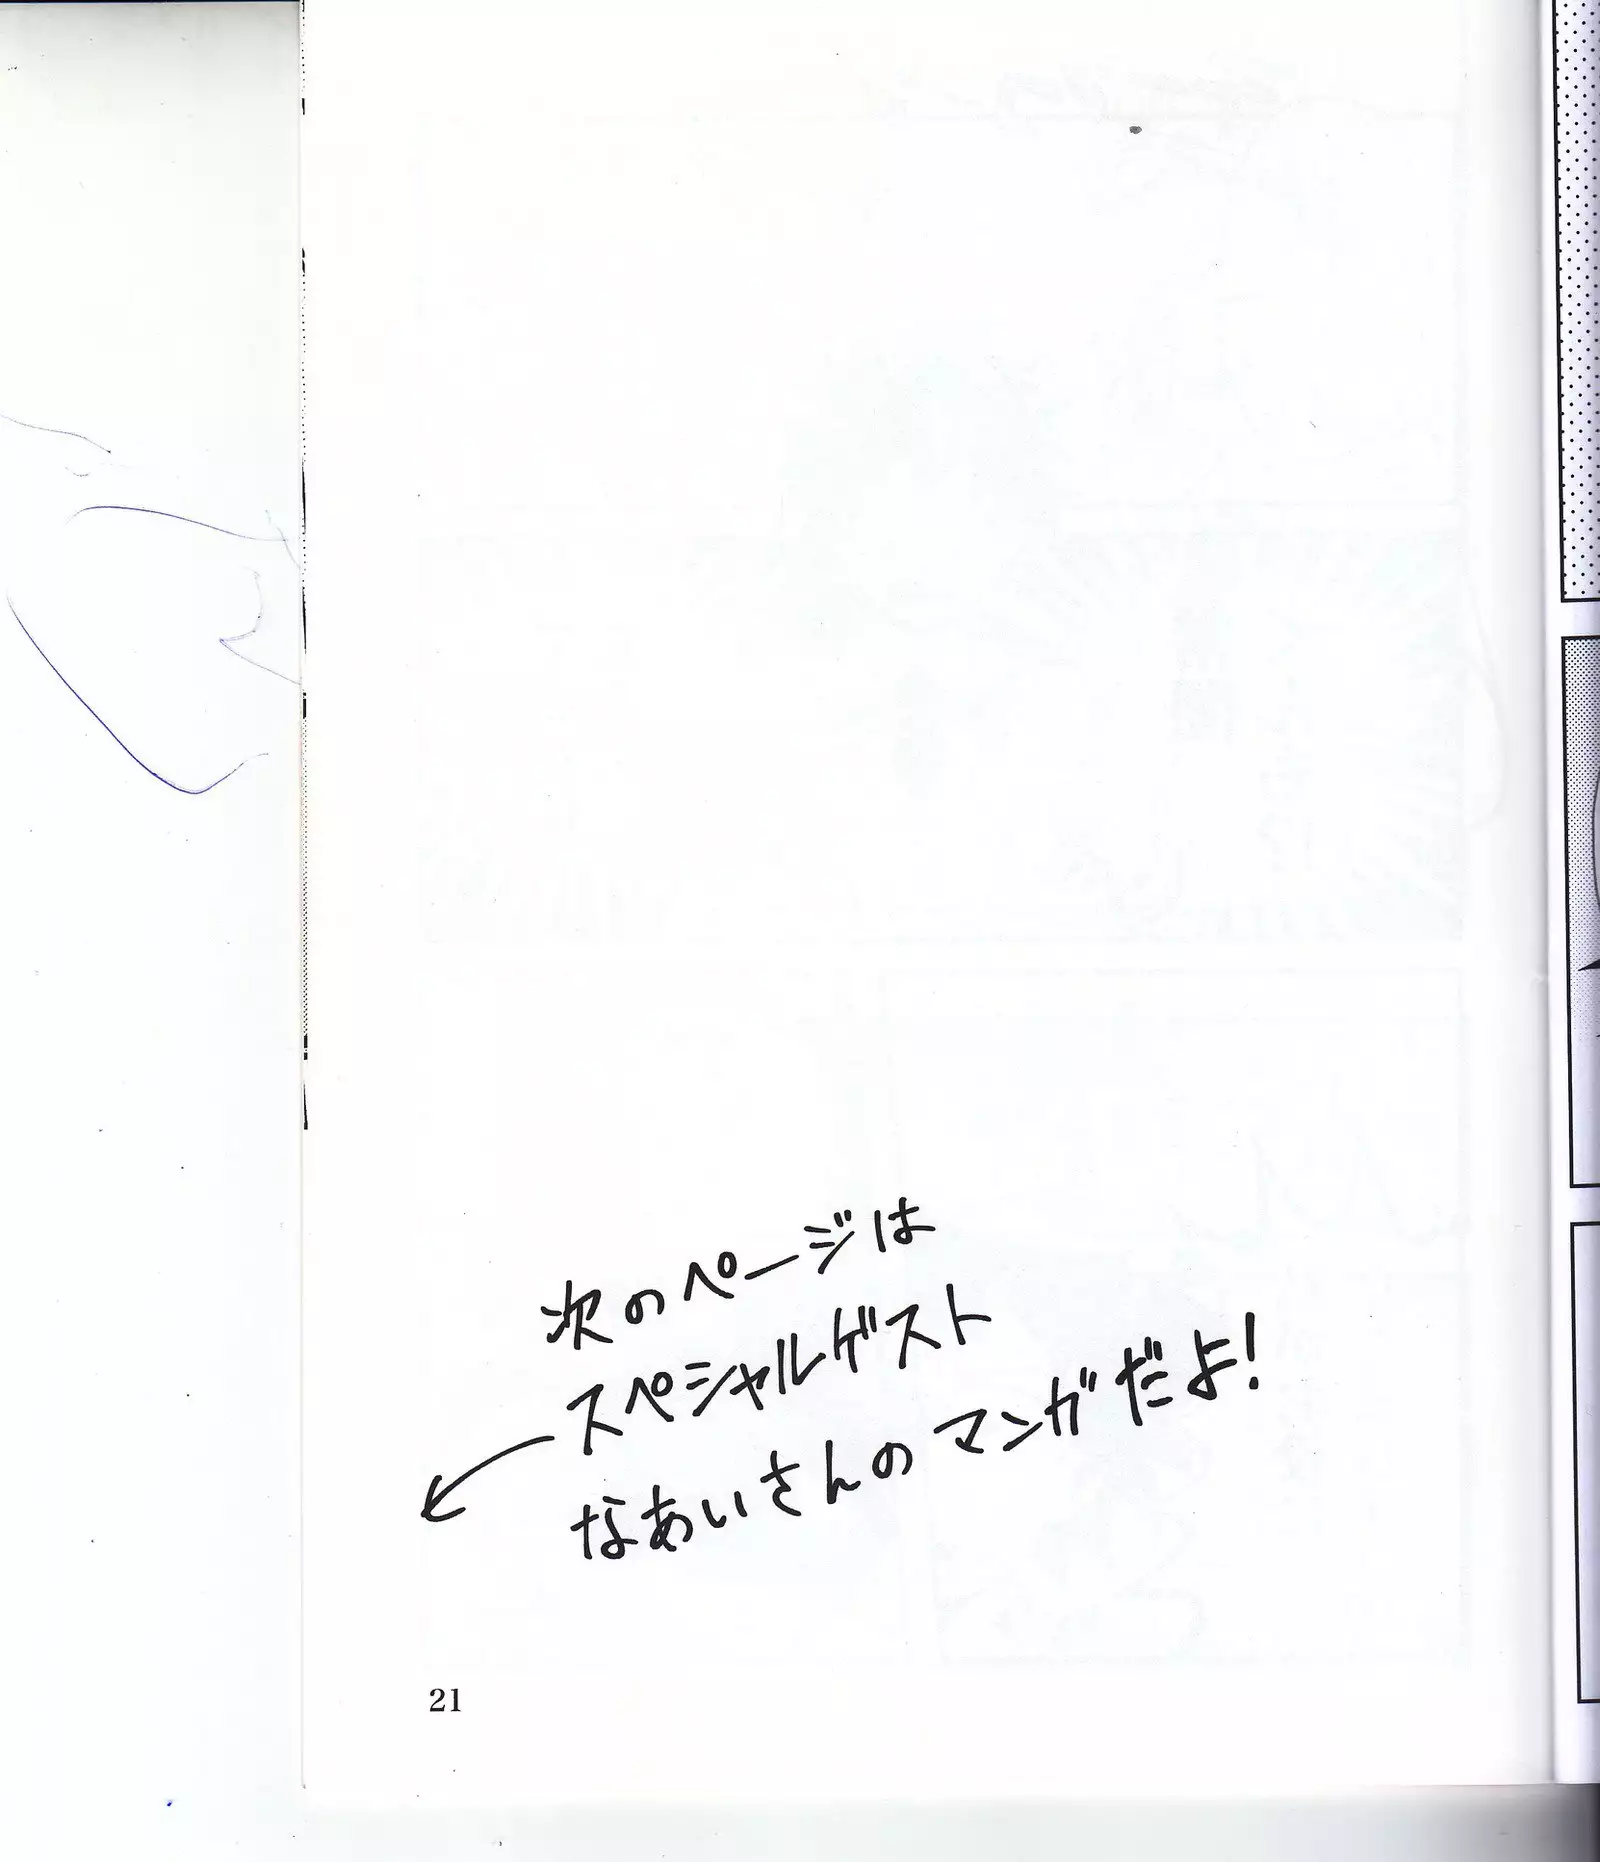 次のページは
スペシャルゲスト
なあいさんのマンガだよ!
21